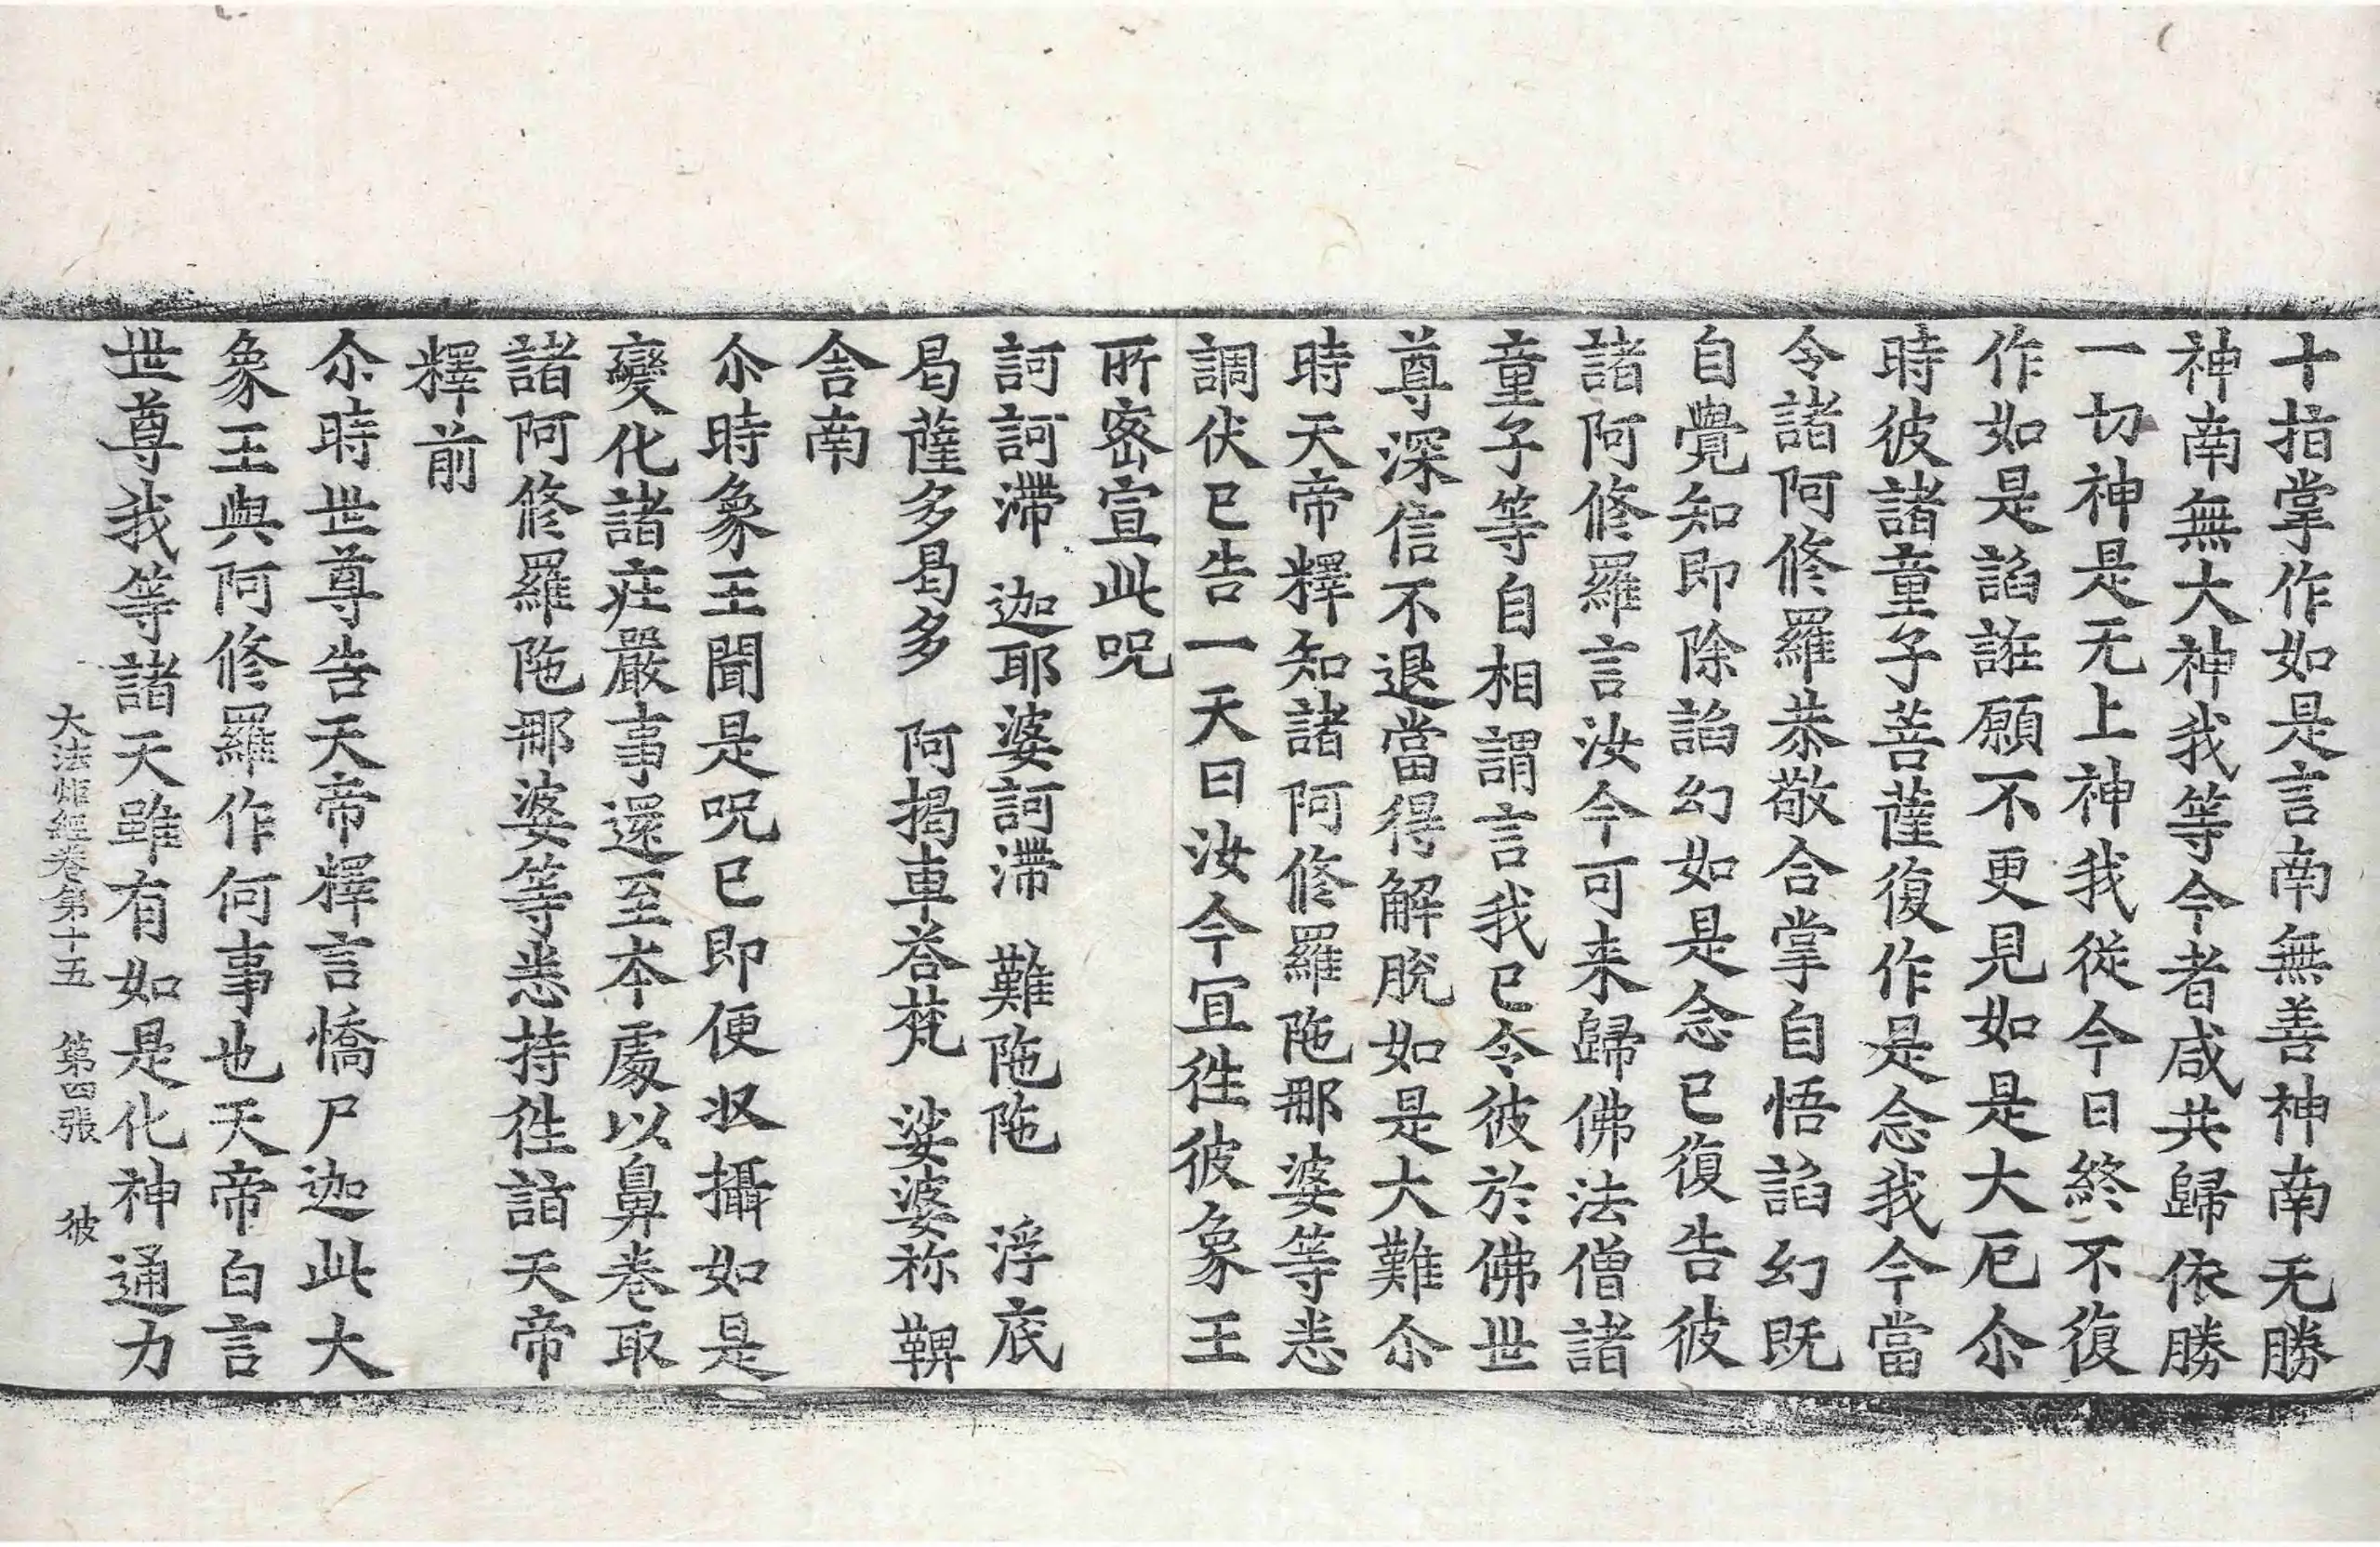 十指掌作如是言南無善神南无勝
神南無大神我等今者咸共歸依勝
一切神是无上神我從今日終不復
作如是諂誑願不更見如是大厄尒
時彼諸童子菩薩復作是念我今當
令諸阿修羅恭敬合掌自悟諂幻既
自覺知即除諂幻如是念已復告彼
諸阿修羅言汝今可来歸佛法僧諸
童子等自相謂言我已令彼於佛世
尊深信不退當得解脫如是大難尒
時天帝釋知諸阿修羅陁那婆等悉
調伏已告一天曰汝今冝徃彼象王
所密宣此呪
訶訶滯 迦耶婆訶滯 難陁陁 浮底
曷薩多曷多 阿揭車荅梵 娑婆袮 鞞
舍南
尒時象王聞是呪已即便収攝如是
變化諸庄嚴事還至本處以鼻卷取
諸阿修羅陁那婆等悉持徃詣天帝
釋前
尒時世尊告天帝釋言憍尸迦此大
象王與阿修羅作何事也天帝白言
世尊我等諸天雖有如是化神通力
大法炬經卷第十五 第四張 彼